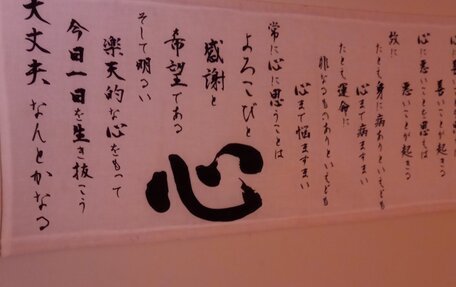 善いことが起きる
心に悪いことを思えば
悪いことが起きる
故に
たとえ身に病ありといえども
心まで病ますまい
たとえ運命に
非なるものありといえども
心まで悩ますまい
常に心に思うことは
よろこびと
感謝と
希望である
心
そして明るい
楽天的な心をもって
今日一日を生き抜こう
大丈夫、なんとかなる